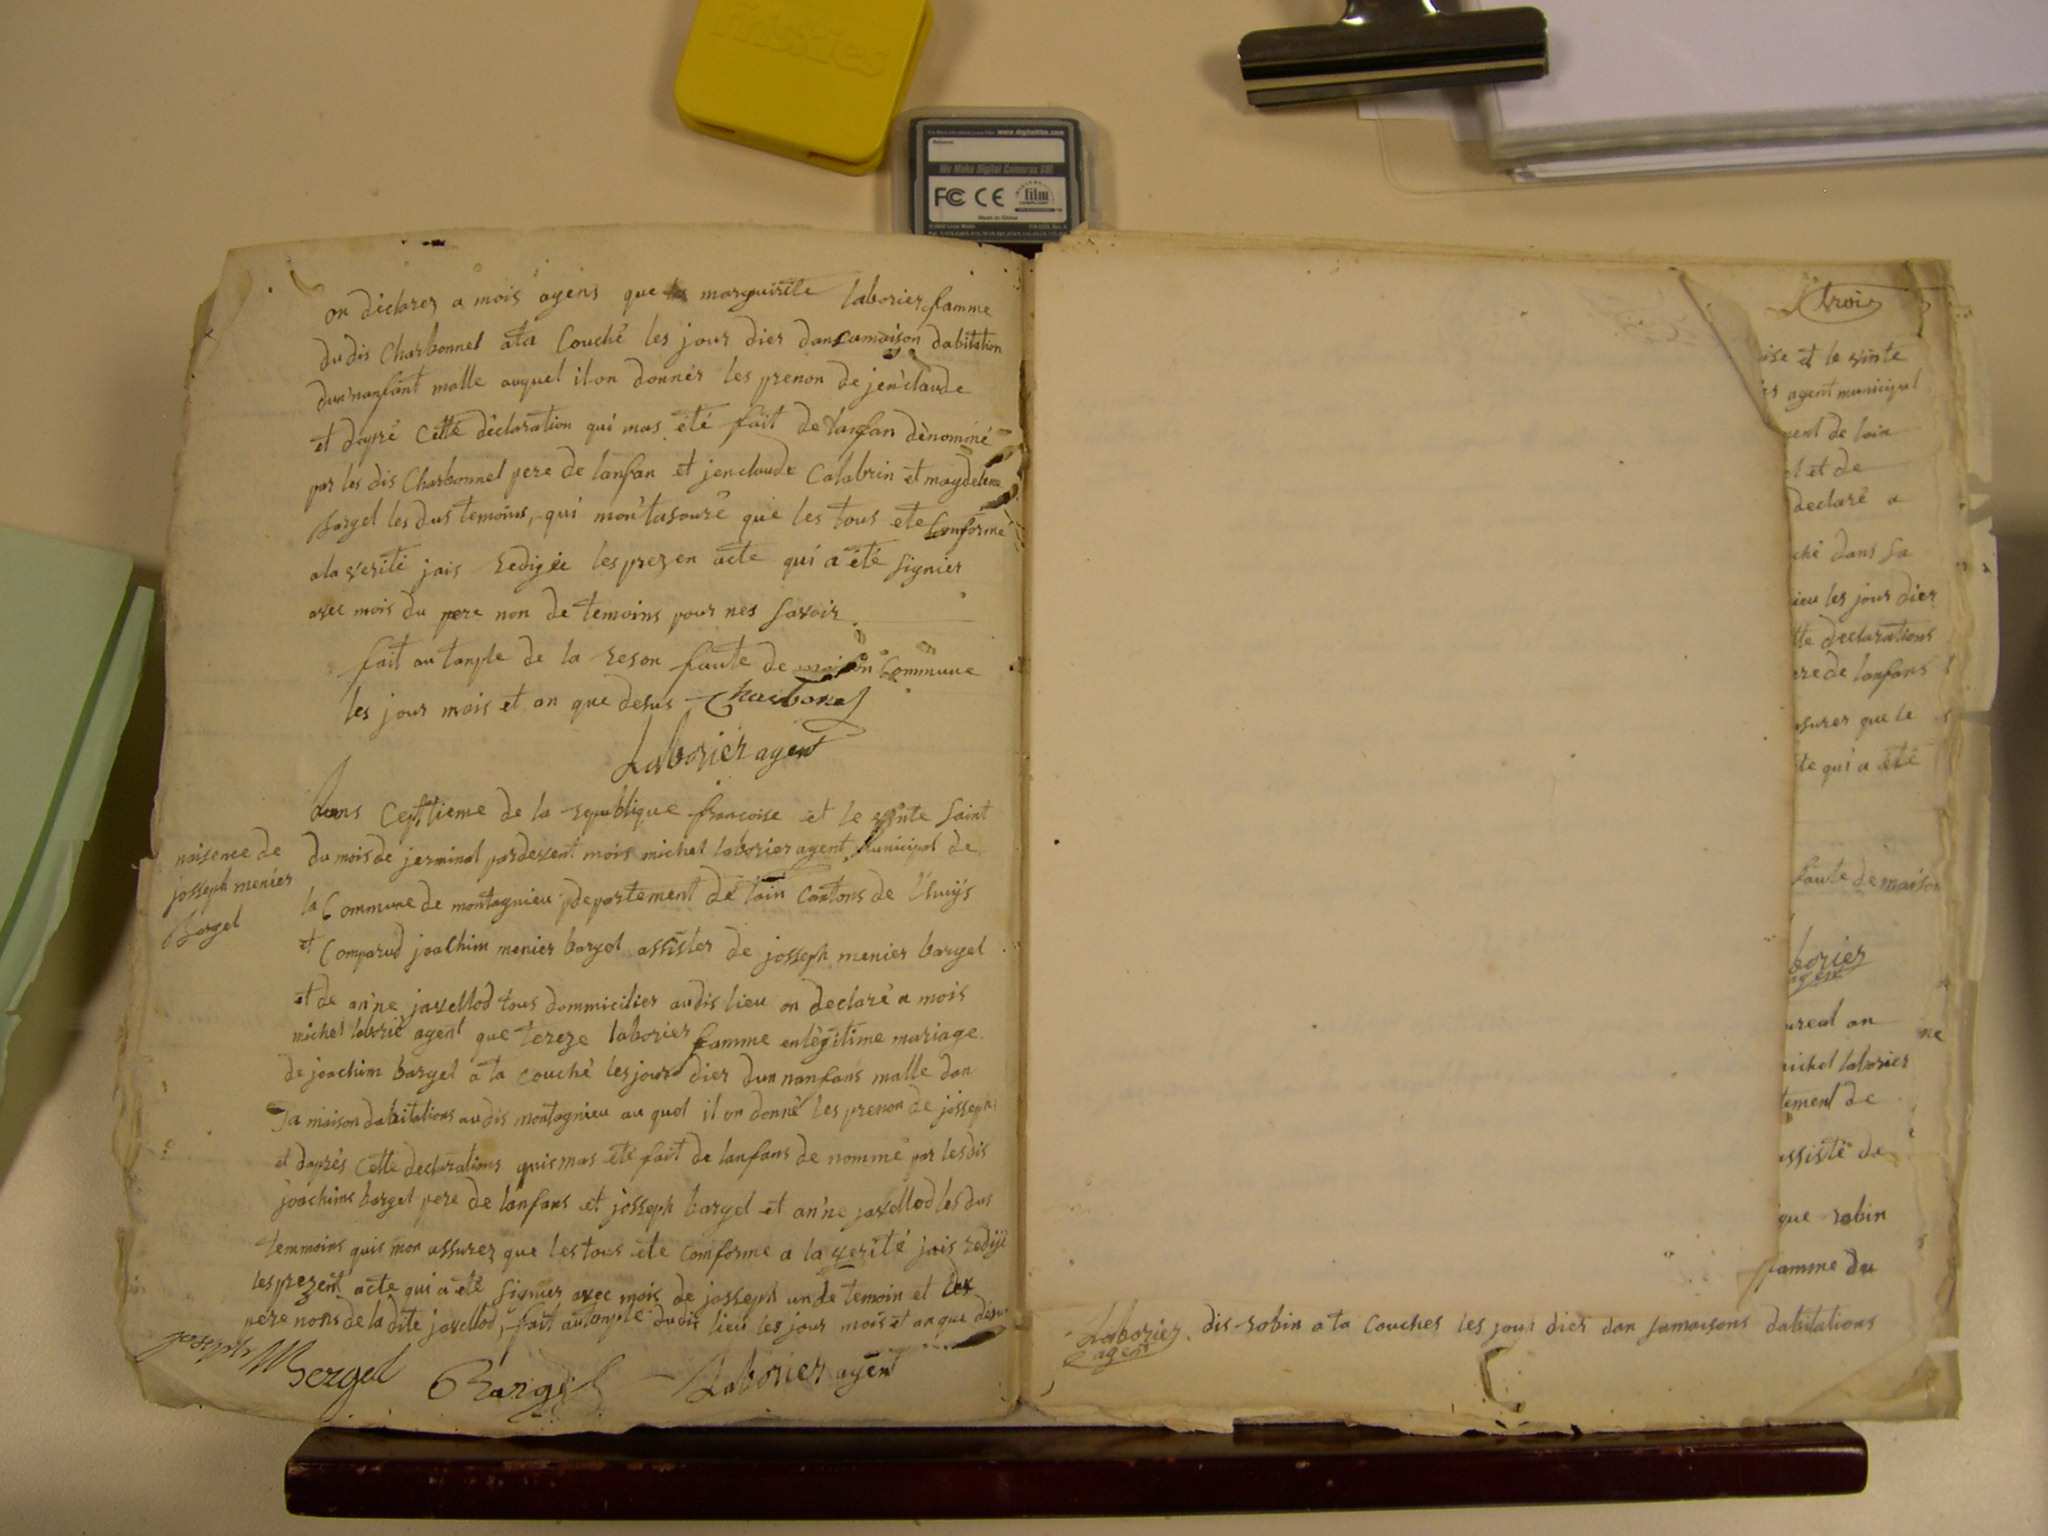 frissies
www.digitalfilm.com
We Make Digital Cameras
FC CE film
Made in China
on declarez a mois agens que marguirite laborier famme
dudis Charbonnel ata Couché les jour dier dan samaison dabitation
dun nanfant malle auquel il on donner les prenon de jenclaude
et dapré Cette déclaration qui mas été fait de lanfan dénominé
par les dis Charbonnel pere de lanfan et jenclaude Calabrin et magdelene
Bargel les dus temoins, qui mon tasouré que les tous ete Conforme
a la verité jais redigée les prezen acte qui a été signier
avec mois du pere non de temoins pour nes savoir
fait au tanple de la reson faute de maison Commune
les jour mois et an que desus Charbonel
Laborier agent
naisence de
josseph menier
Bargel
Lans Ceptieme de la republique françoise et le vinte saint
du mois de jerminal pardevent mois michel laborier agent municipal de
la Commune de montagnieu departement de lain Cantons de Lhuijs
et Comparud joachim menier bargel assister de josseph menier bargel
et de an'ne javellod tous dommicilier audis lieu on declaré a mois
michel laborié agent que tereze laborier famme enlégitime mariage
de joachim bargel a ta couché les jour dier dun nanfans malle dan
sa maison dabitations audis montagnieu au quel il on donné les prenon de josseph
et daprés Cette declarations quis mas été fait de lanfans de nommé par les dis
joachims bargel pere de lanfans et josseph bargel et an'ne javellod les dus
temmoins quis mon assurez que les tous ete comforme a la verité jais redijé
les prezent acte qui a été signier avec mois de josseph un de temoin et des
pere nons de la dite javellod, fait au tanple dudis lieu les jour mois et an que desus
joseph M Bergel Bargel Laborier agent
trois
oise et le vinte
agent municipal
ment de lain
el et de
declaré a
ché dans sa
lieu les jour dier
tte declarations
ere de lanfans
surer que le
te qui a été
faute de maison
borier
agent
ureal an
michel laborier
tement de
assisté de
que robin
famme du
Laborier
agent
dis robin a ta Couches les jour dier dan samaisons dabitations